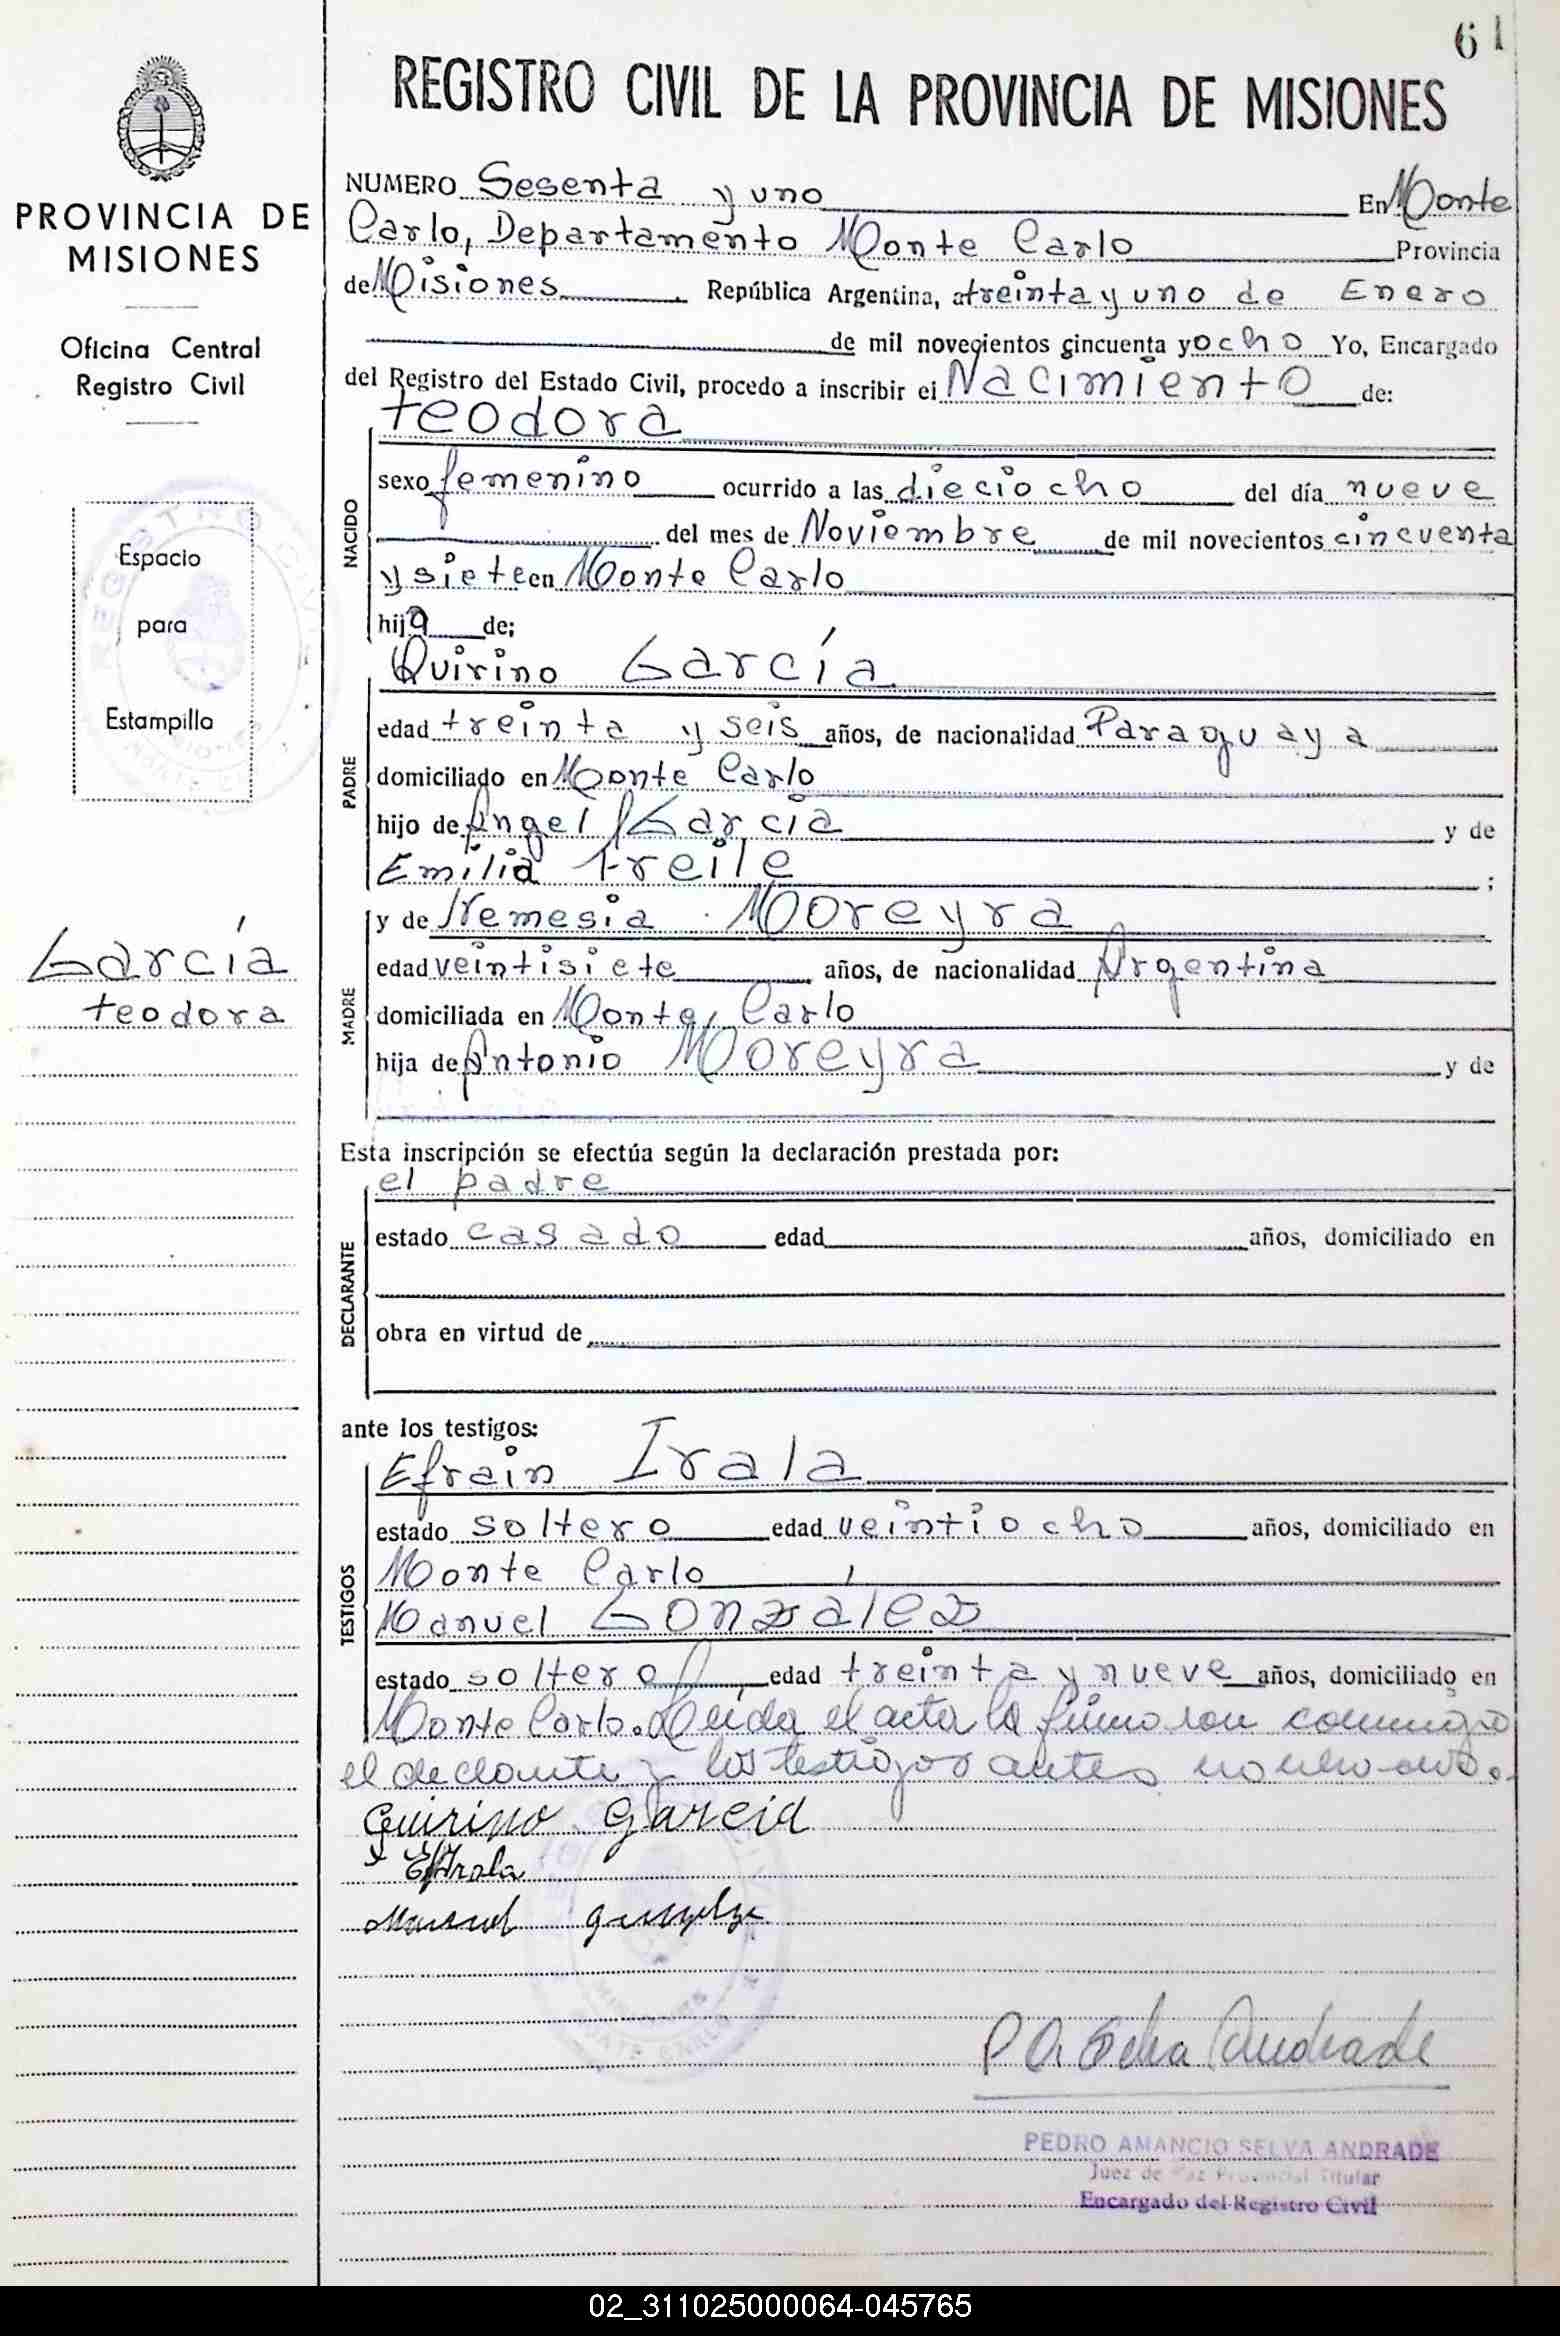 61
REGISTRO CIVIL DE LA PROVINCIA DE MISIONES
PROVINCIA DE
MISIONES
Oficina Central
Registro Civil
Espacio
para
Estampilla
García
teodora
NUMERO Sesenta y uno En Monte
Carlo, Departamento Monte Carlo Provincia
de Misiones República Argentina, a treinta y uno de Enero
de mil novecientos cincuenta y ocho Yo, Encargado
del Registro del Estado Civil, procedo a inscribir el Nacimiento de:
NACIDO
teodora
sexo femenino ocurrido a las dieciocho del día nueve
del mes de Noviembre de mil novecientos cincuenta
y siete en Monte Carlo
hija de;
PADRE
Quirino García
edad treinta y seis años, de nacionalidad Paraguaya
domiciliado en Monte Carlo
hijo de Angel García y de
Emilia freile ;
MADRE
y de Nemesia Moreyra
edad veintisiete años, de nacionalidad Argentina
domiciliada en Monte Carlo
hija de Antonio Moreyra y de
Esta inscripción se efectúa según la declaración prestada por:
DECLARANTE
el padre
estado casado edad años, domiciliado en
obra en virtud de
ante los testigos:
TESTIGOS
Efrain Irala
estado soltero edad veintiocho años, domiciliado en
Monte Carlo
Manuel González
estado soltero edad treinta y nueve años, domiciliado en
Monte Carlo. Leida el acta la firmo con conmigo
el declante y los testigos antes nombrados.
Quirino Garcia
EfIrala
Manuel
P A. Selva Andrade
PEDRO AMANCIO SELVA ANDRADE
Juez de Paz Provincial Titular
Encargado del Registro Civil
02_311025000064-045765